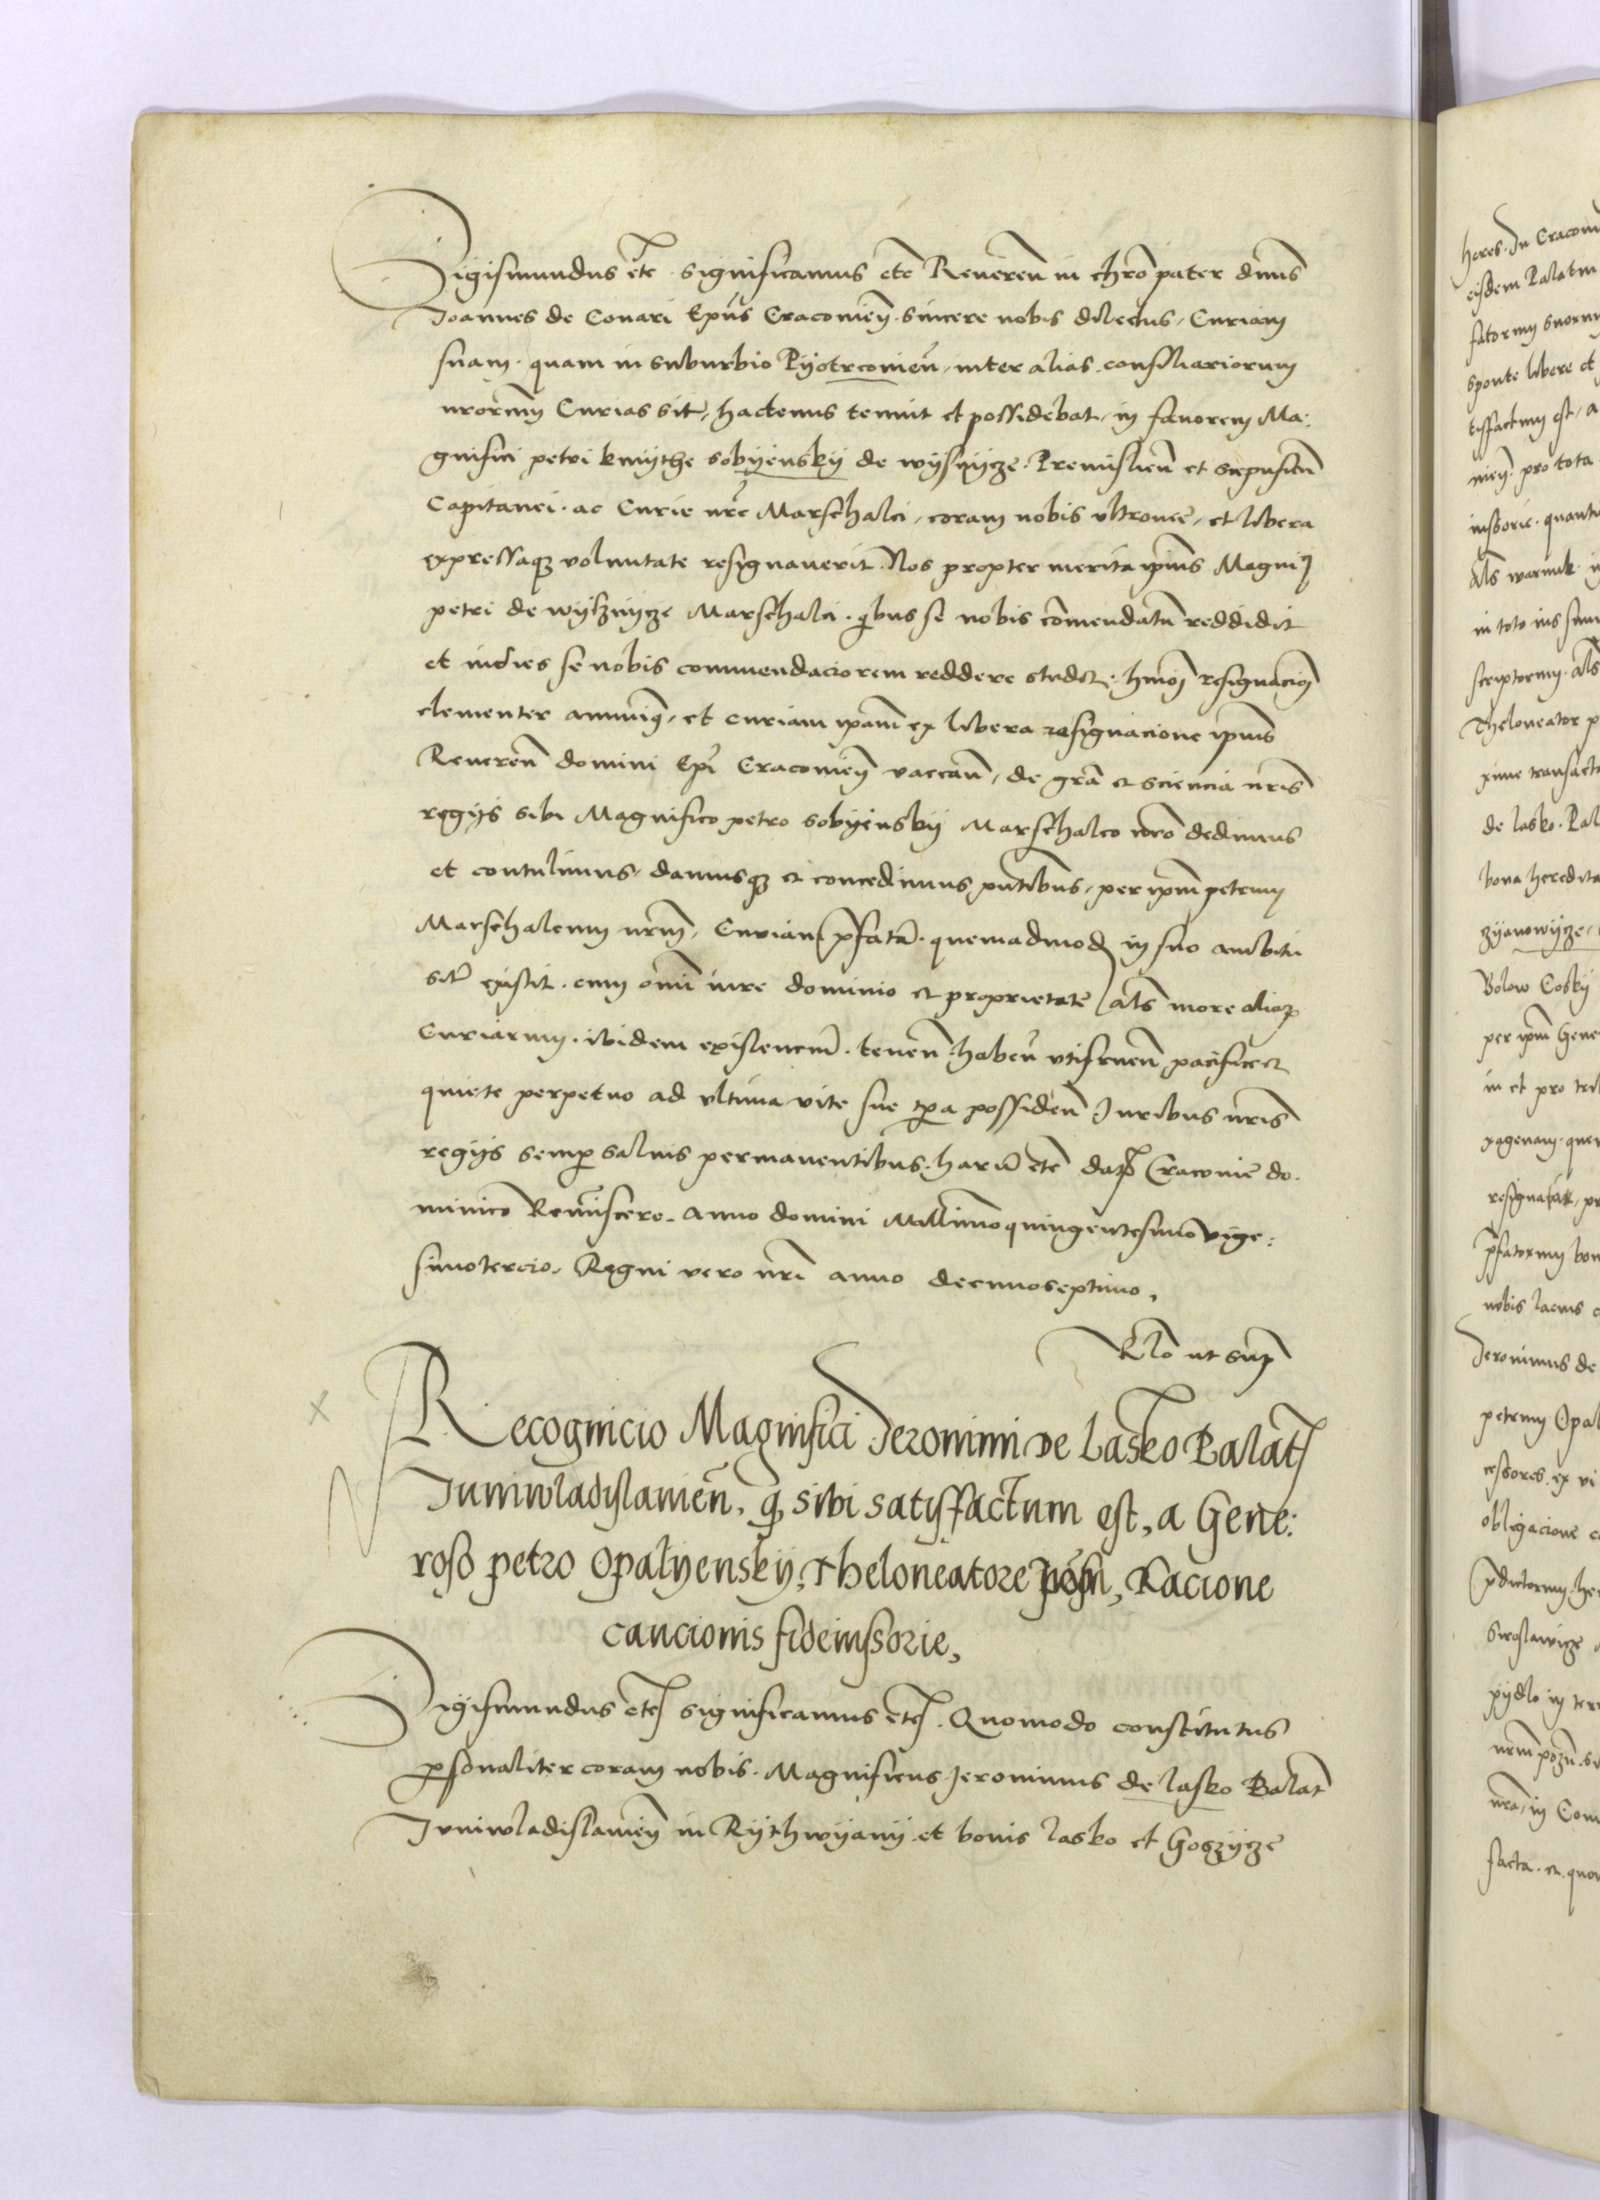 Sigismundus etc. significamus etc Reveren in chro pater dnus
Joannes de Conari Epus Cracovien. sincere nobis dilectus, Curiam
suam. quam in suburbio Pyotrcovien, inter alias consiliariorum
nrorum Curias sit, hactenus tenuit et possidebat, in favorem Ma:
gnifici petri kmythe sobyensky de wysnycze. Premislien et scepusien
Capitanei. ac Curie nre Marschalci, coram nobis ultronee, et libera
expressaque voluntate resignaverit. Nos propter merita ipius Magnifi
petri de wysznycze Marschalci. quibus se nobis comendatum reddidit
et indies se nobis commendaciorem reddere studet. hmoi resignacioi
clementer annuimus, et curiam ipam ex libera resignacione ipius
Reveren domini Epi Cracovien vacan, de gra et sciencia nris
regys sibi Magnifico petro sobyensky Marschalco nro dedimus
et contulimus, damusque et concedimus pntibus, per ipm petrum
Marschalcum nrm, Curiam pfatam. quemadmodum in suo ambitu
sita existit. cum omi iure dominio et proprietate als more aliarum
Curiarum. ibidem existencium. tenen haben utifruen pacifice et
quiete perpetuo ad ultima vite sue tpa possiden Juribus nris
regys semper salvis permanentibus. harum etc dat Cracovie do.
minico Reminiscere. anno domini Millimo quingentesimo vige:
simotercio. Regni vero nri anno decimoseptimo.
Rlo ut supra
Recognicio Magnifici Jeronimi de Lasko Palat
Juniwladislavien, quod sibi satisfactum est, a Gene:
roso petro Opalyensky, Theloneatore posn, Racione
caucionis fideiussorie,
Sigismundus etc significamus etc. Quomodo constitutus
personaliter coram nobis. Magnificus Jeronimus de lasko Palat
Juniwladislavien in Rythwyany et bonis lasko et Goszycze
heres. In Cracovi
eisdem Palatin
fatorum suorum
sponte libere et
tisfactum est, a
nien. pro tota
iussorie. quanta
als warunk
in toto ius suum
scriptorum. als
Theloneator p
xime transacte
de lasko. Pal
bona heredita
zyanowycze
Bolow Cosky
per ipm Gene
in et pro tri
xagenam. quem
resignat, pr
pfatorum bon
nobis lacius
Jeronimus de
petrum Opal
cessores. ex vi
obligacione
pdictorum. he
Siroslawicze
pydlo in terr
nrm pozn. si
nra, in Com
facta. et quo